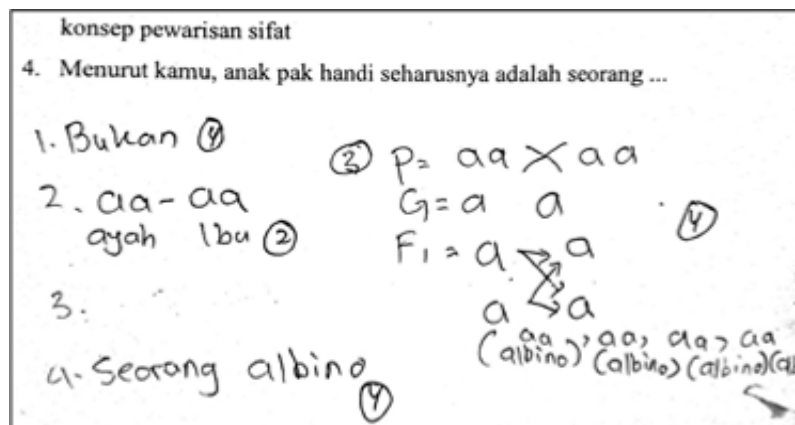 konsep pewarisan sifat
4. Menurut kamu, anak pak handi seharusnya adalah seorang ...
1. Bukan ④
2. aa - aa
ayah Ibu ②
3.
4. Seorang albino ④
③ P = aa X aa
G = a a ④
F1 = a a
a a
aa, aa, aa, aa
(albino) (albino) (albino) (al